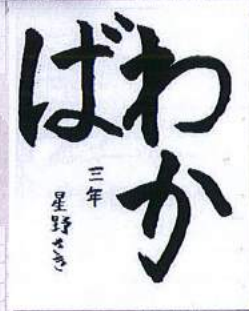 わか
ば
三年
星野さき